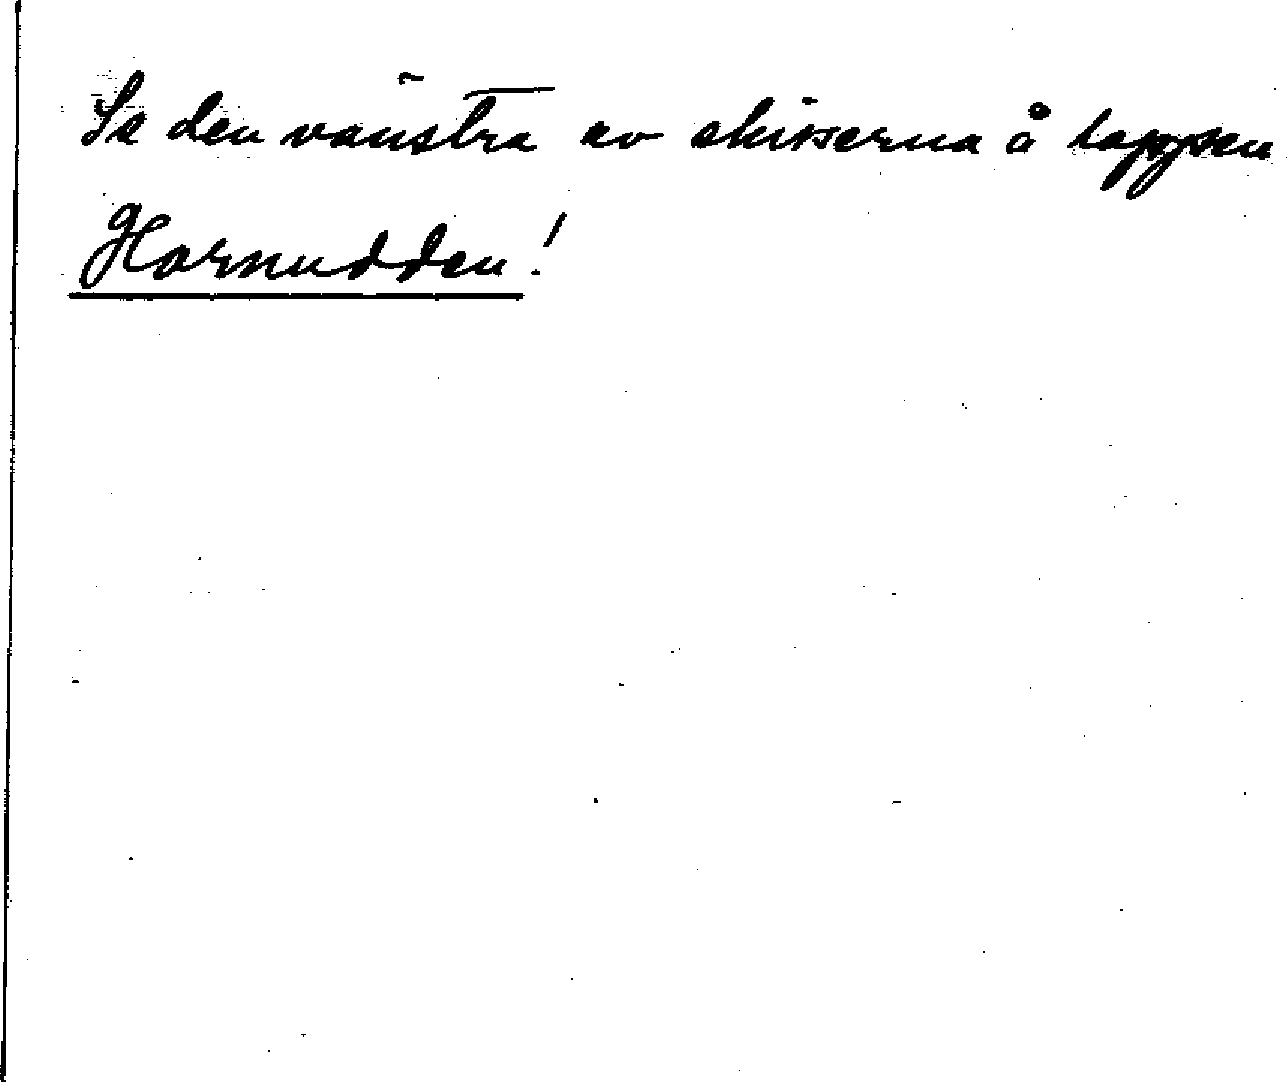 Se den vänstra av skisserna å lappen
Hornudden!